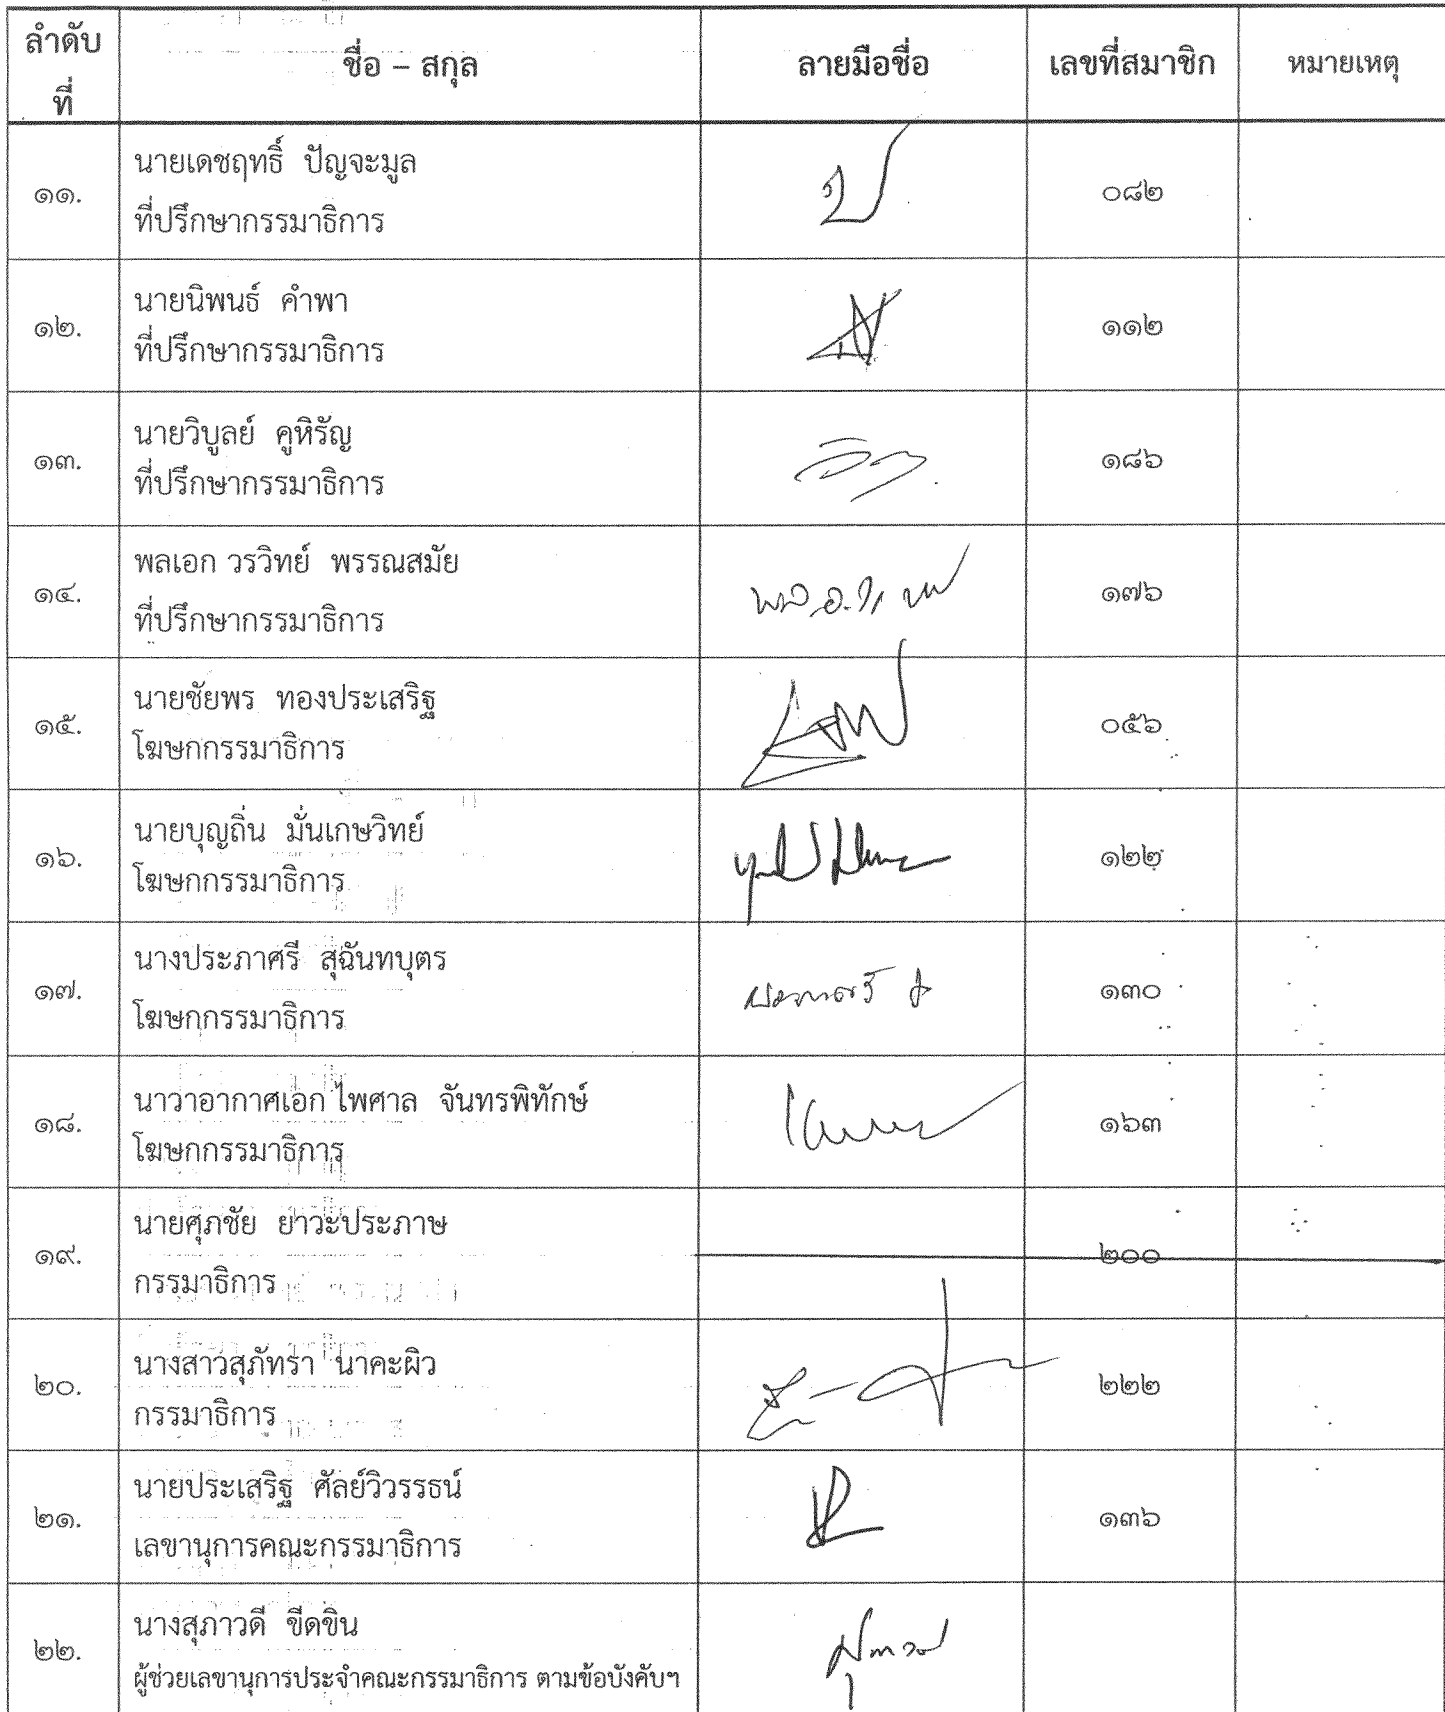 ลำดับ
ที่
ชื่อ – สกุล
ลายมือชื่อ
เลขที่สมาชิก
หมายเหตุ
๑๑.
นายเดชฤทธิ์ ปัญจะมูล
ที่ปรึกษากรรมาธิการ
๐๘๒
๑๒.
นายนิพนธ์ คำพา
ที่ปรึกษากรรมาธิการ
๑๑๒
๑๓.
นายวิบูลย์ คูหิรัญ
ที่ปรึกษากรรมาธิการ
๑๘๖
๑๔.
พลเอก วรวิทย์ พรรณสมัย
ที่ปรึกษากรรมาธิการ
๑๗๖
๑๕.
นายชัยพร ทองประเสริฐ
โฆษกกรรมาธิการ
๐๕๖
๑๖.
นายบุญถิ่น มั่นเกษวิทย์
โฆษกกรรมาธิการ
๑๒๒
๑๗.
นางประภาศรี สุฉันทบุตร
โฆษกกรรมาธิการ
๑๓๐
๑๘.
นาวาอากาศเอก ไพศาล จันทรพิทักษ์
โฆษกกรรมาธิการ
๑๖๓
๑๙.
นายศุภชัย ยาวะประภาษ
กรรมาธิการ
๒๐๐
๒๐.
นางสาวสุภัทรา นาคะผิว
กรรมาธิการ
๒๒๒
๒๑.
นายประเสริฐ ศัลย์วิวรรธน์
เลขานุการคณะกรรมาธิการ
๑๓๖
๒๒.
นางสุภาวดี ขีดขิน
ผู้ช่วยเลขานุการประจำคณะกรรมาธิการ ตามข้อบังคับฯ